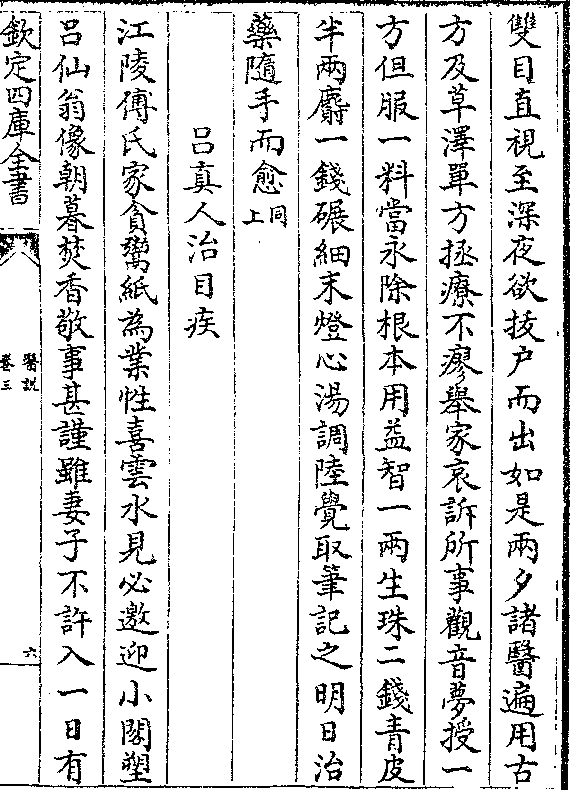 雙目直視至深夜欲拔户而出如是兩夕諸醫遍用古
方及草澤單方拯療不瘳舉家哀訴所事觀音夢授一
方但服一料當永除根本用益智一兩生珠二錢青皮
半兩麝一錢碾細末燈心湯調陸覺取筆記之明日治
藥隨手而愈同上
吕真人治目疾
江陵傅氏家貧鬻紙為業性喜雲水見必邀迎小閣塑
吕仙翁像朝暮焚香敬事甚謹雖妻子不許入一日有
欽定四庫全書
醫説
卷三
六